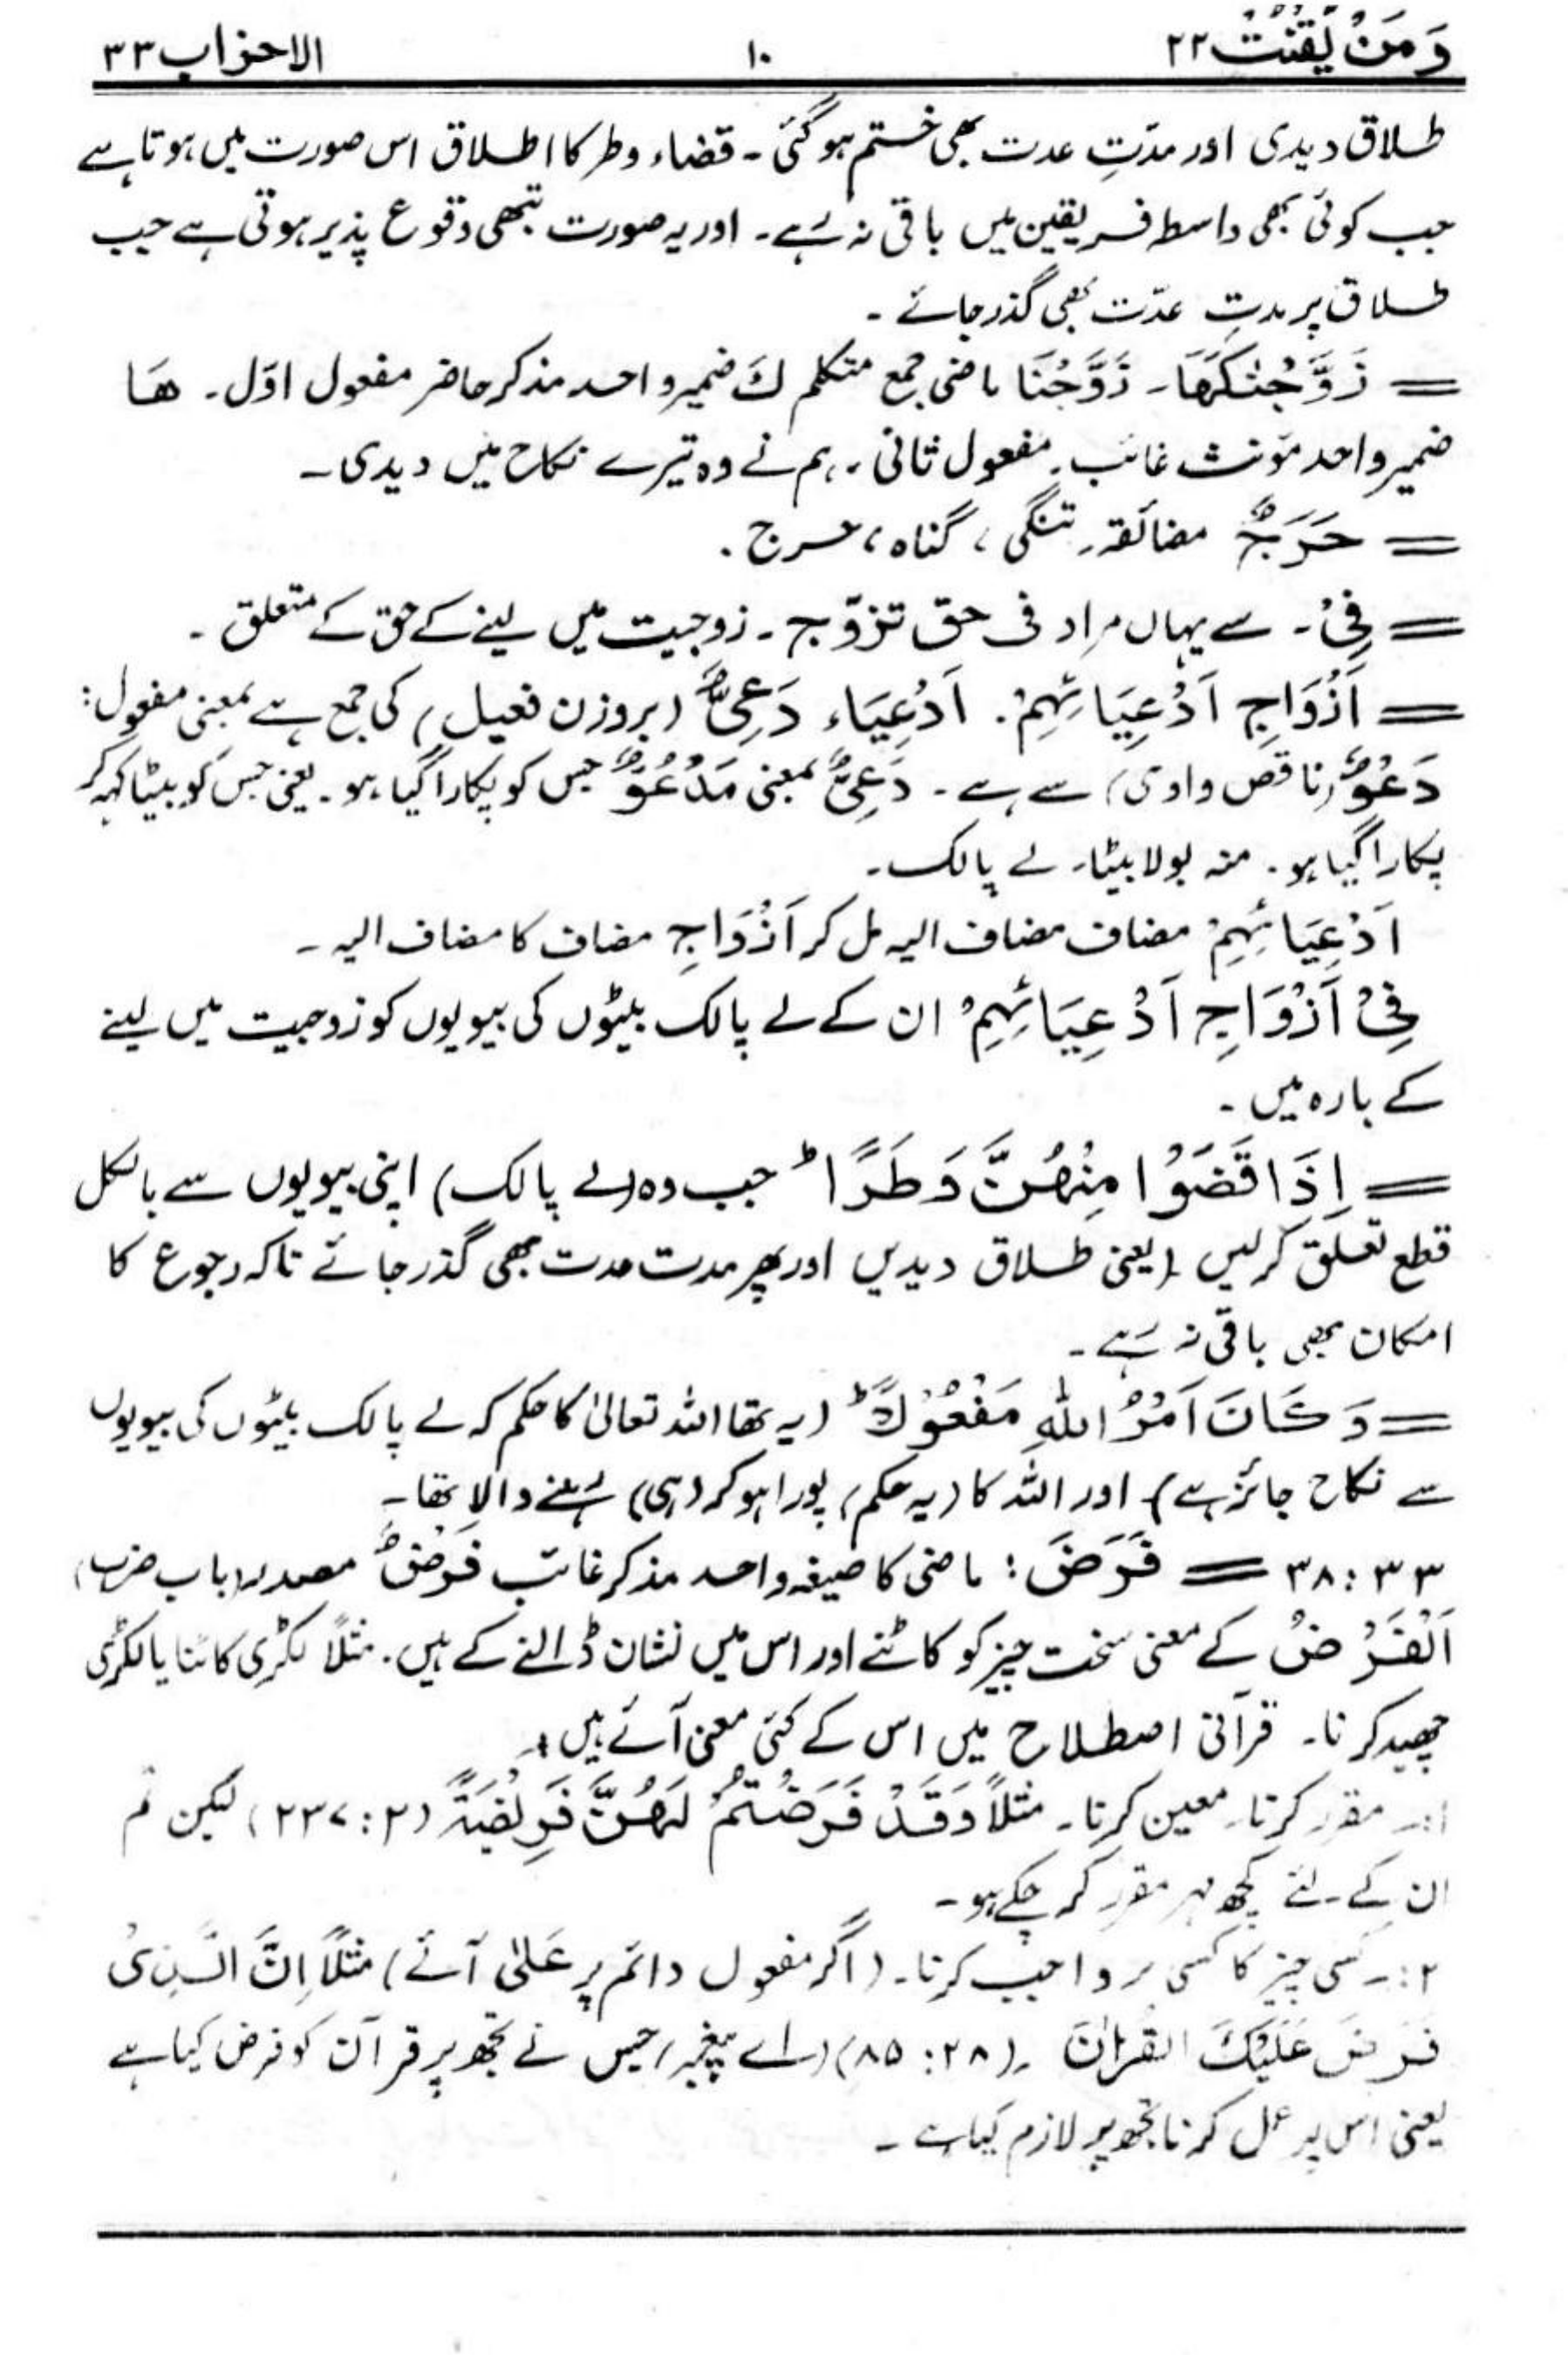 وَمَنْ يَّقْنُتْ ۲۲ ۱۰ الاحزاب ۳۳
طلاق دیدی اور مدّتِ عدت بھی ختم ہوگئی ۔ قضاء وطر کا اطلاق اس صورت میں ہوتا ہے
جب کوئی بھی واسطہ فریقین میں باقی نہ رہے ۔ اور یہ صورت تبھی وقوع پذیر ہوتی ہے جب
طلاق پر مدتِ عدّت بھی گذر جائے ۔
= زَوَّجْنٰكَهَا ۔ زَوَّجْنَا ماضی جمع متکلم كَ ضمیر واحد مذکر حاضر مفعول اوّل ۔ هَا
ضمیر واحد مؤنث غائب ۔ مفعول ثانی ، ہم نے وہ تیرے نکاح میں دیدی ۔
= حَرَجٌ مضائقہ ۔ تنگی ، گناہ ، حرج ۔
= فِیْ ۔ سے یہاں مراد فی حق تزوّج ۔ زوجیت میں لینے کے حق کے متعلق ۔
= اَزْوَاجِ اَدْعِيَائِهِمْ ۔ اَدْعِيَاء دَعِیٌّ (بروزن فعیل) کی جمع ہے بمعنی مفعول :
دَعْوٌ (ناقص واوی) سے ہے ۔ دَعِیٌّ بمعنی مَدْعُوٌّ جس کو پکارا گیا ہو ۔ یعنی جس کو بیٹا کہہ کر
پکارا گیا ہو ۔ منہ بولا بیٹا ۔ لے پالک ۔
اَدْعِيَائِهِمْ مضاف مضاف الیہ مل کر اَزْوَاجِ مضاف کا مضاف الیہ ۔
فِیْ اَزْوَاجِ اَدْعِيَائِهِمْ ان کے لے پالک بیٹوں کی بیویوں کو زوجیت میں لینے
کے بارہ میں ۔
= اِذَا قَضَوْا مِنْهُنَّ وَطَرًا ؕ جب وہ (لے پالک) اپنی بیویوں سے بالکل
قطع تعلق کرلیں (یعنی طلاق دیدیں اور پھر مدت عدت بھی گذر جائے تاکہ رجوع کا
امکان بھی باقی نہ رہے ۔
= وَكَانَ اَمْرُ اللّٰهِ مَفْعُوْلًا ؕ (یہ تھا اللہ تعالیٰ کا حکم کہ لے پالک بیٹوں کی بیویوں
سے نکاح جائز ہے) اور اللہ کا (یہ حکم) پورا ہوکر (ہی) رہنے والا تھا ۔
۳۳ : ۳۸ = فَرَضَ : ماضی کا صیغہ واحد مذکر غائب فَرْضٌ مصدر (باب ضرب)
اَلْفَرْضُ کے معنی سخت چیز کو کاٹنے اور اس میں نشان ڈالنے کے ہیں ۔ مثلاً لکڑی کاٹنا یا لکڑی
چھید کرنا ۔ قرآنی اصطلاح میں اس کے کئی معنی آئے ہیں ۔
۱:۔ مقرر کرنا ۔ معین کرنا ۔ مثلاً وَقَدْ فَرَضْتُمْ لَهُنَّ فَرِيْضَةً (۲ : ۲۳۷) لیکن تم
ان کے لئے کچھ مہر مقرر کر چکے ہو ۔
۲:۔ کسی چیز کا کسی پر واجب کرنا ۔ (اگر مفعول دائم پر عَلٰی آئے) مثلاً اِنَّ الَّذِیْ
فَرَضَ عَلَيْكَ الْقُرْاٰنَ ۔ (۲۸ : ۸۵) (اے پیغمبر) جس نے تجھ پر قرآن کو فرض کیا ہے
یعنی اس پر عمل کرنا تجھ پر لازم کیا ہے ۔